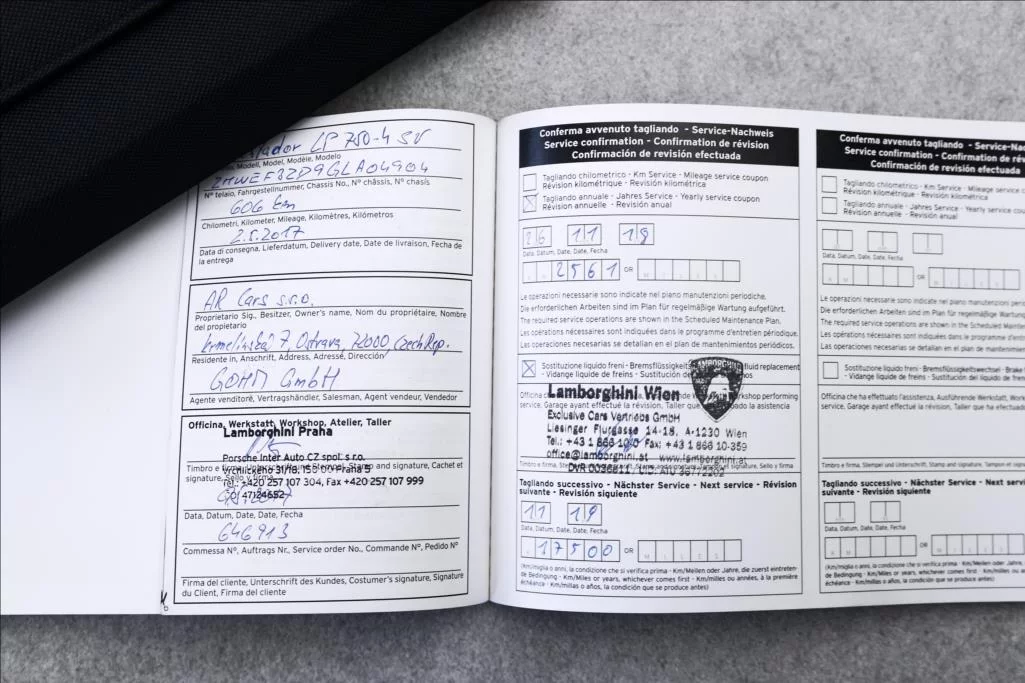 LP 750-4 SV
Modell, Model, Modèle, Modelo
Nº telaio, Fahrgestellnummer, Chassis No., Nº châssis, Nº chasis
606 km
Chilometri, Kilometer, Mileage, Kilomètres, Kilómetros
2.5.2017
Data di consegna, Lieferdatum, Delivery date, Date de livraison, Fecha de
la entrega
AR Cars s.r.o.
Proprietario Sig., Besitzer, Owner's name, Nom du propriétaire, Nombre
del propietario
7, Ostrava, 72000, Czech Rep.
Residente in, Anschrift, Address, Adresse, Dirección
GOHM GmbH
Agente venditoré, Vertragshändler, Salesman, Agent vendeur, Vendedor
Officina, Werkstatt, Workshop, Atelier, Taller
Lamborghini Praha
Porsche Inter Auto CZ spol. s r.o.
Vrchlického 31/18, 150 00 Praha 5
Timbro e firma, Stamp and signature, Cachet et
signature, Sello y firma
Tel.: +420 257 107 304, Fax +420 257 107 999
Data, Datum, Date, Date, Fecha
646913
Commessa Nº, Auftrags Nr., Service order No., Commande Nº, Pedido Nº
Firma del cliente, Unterschrift des Kundes, Costumer's signature, Signature
du Client, Firma del cliente
Conferma avvenuto tagliando - Service-Nachweis
Service confirmation - Confirmation de révision
Confirmación de revisión efectuada
Tagliando chilometrico - Km Service - Mileage service coupon
Révision kilométrique - Revisión kilométrica
Tagliando annuale - Jahres Service - Yearly service coupon
Révision annuelle - Revisión anual
26 11 18
Data, Datum, Date, Date, Fecha
2561 OR
Le operazioni necessarie sono indicate nel piano manutenzioni periodiche.
Die erforderlichen Arbeiten sind im Plan für regelmäßige Wartung aufgeführt.
The required service operations are shown in the Scheduled Maintenance Plan.
Les opérations nécessaires sont indiquées dans le programme d'entretien périodique.
Las operaciones necesarias se detallan en el plan de mantenimientos periódicos.
Sostituzione liquido freni - Bremsflüssigkeits fluid replacement
- Vidange liquide de freins - Sustitución de
LAMBORGHINI
Lamborghini Wien
Workshop performing
service, Garage ayant effectué la révision, Taller que la asistencia
Exclusive Cars Vertriebs GmbH
Liesinger Flurgasse 14-18, A-1230 Wien
Tel.: +43 1 866 Fax: +43 1 866 10-359
office@lamborghini.at www.lamborghini.at
Timbro e firma, signature, Sello y firma
Tagliando successivo - Nächster Service - Next service - Révision
suivante - Revisión siguiente
11 19
Data, Datum, Date, Date, Fecha
17500 OR MILES
(Km/miglia o anni, la condizione che si verifica prima - Km/Meilen oder Jahre, die zuerst eintreten-
de Bedingung - Km/Miles or years, whichever comes first - Km/milles ou années, à la première
échéance - Km/millas o años, la condición que se produce antes)
Conferma avvenuto tagliando - Service-Na
Service confirmation - Confirmation de rév
Confirmación de revisión efectuada
Tagliando chilometrico - Km Service - Mileage service
Révision kilométrique - Revisión kilométrica
Tagliando annuale - Jahres Service - Yearly service coup
Révision annuelle - Revisión anual
Data, Datum, Date, Date, Fecha
OR
Le operazioni necessarie sono indicate nel piano manutenzioni perio
Die erforderlichen Arbeiten sind im Plan für regelmäßige Wartung
The required service operations are shown in the Scheduled Mainten
Les opérations nécessaires sont indiquées dans le programme d'entre
Las operaciones necesarias se detallan en el plan de mantenimiento
Sostituzione liquido freni - Bremsflüssigkeitswechsel - Brake
- Vidange liquide de freins - Sustitución del líquido de fren
Officina che ha effettuato l'assistenza, Ausführende Werkstatt, Work
service, Garage ayant effectué la révision, Taller que ha efectuado
Timbro e firma, Stempel und Unterschrift, Stamp and signature, Tampon et sign
Tagliando successivo - Nächster Service - Next servic
suivante - Revisión siguiente
Data, Datum, Date, Date, Fecha
KM OR MILES
(Km/miglia o anni, la condizione che si verifica prima - Km/Meilen oder
de Bedingung - Km/Miles or years, whichever comes first - Km/milles ou
échéance - Km/millas o años, la condición que se produce antes)